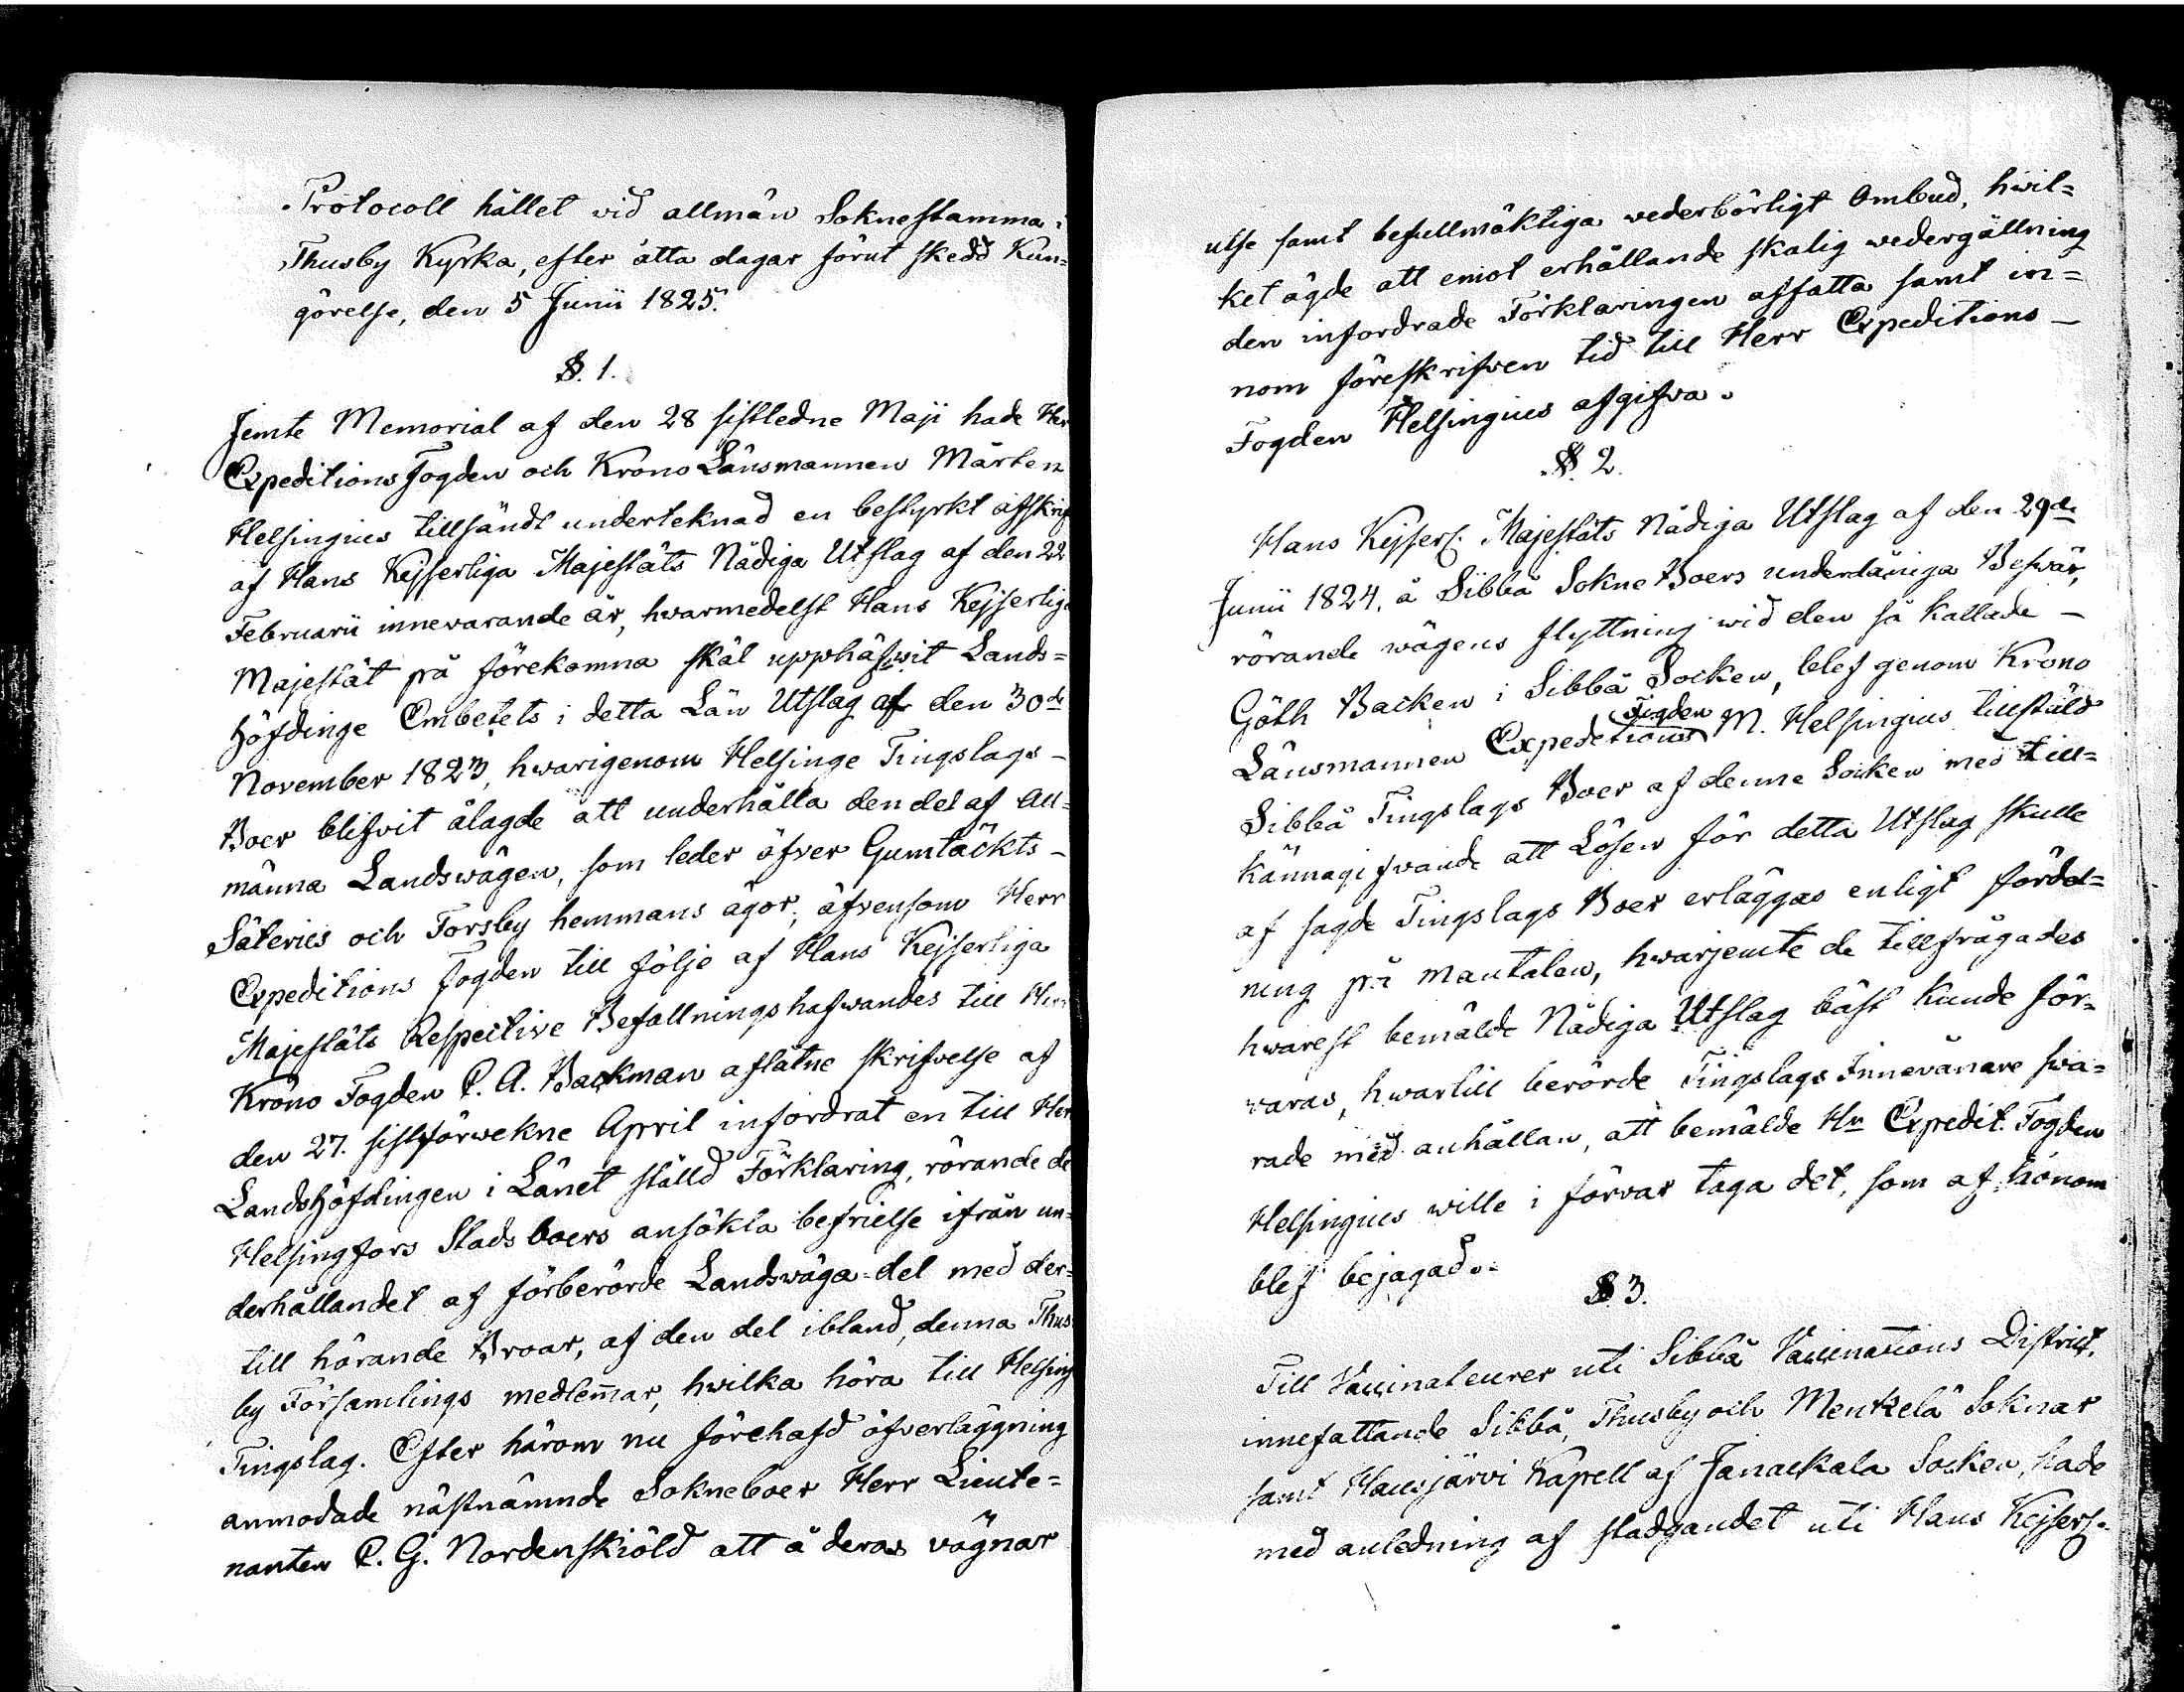 Protocoll hållet vid allmän Sokne stamma i
Thusby Kyrka, efter åtta dagar förut skedd Kun=
görelse, den 5 Junii 1825.
§. 1.
Jemte Memorial af den 28 sistledne Maji hade Her
Expeditions Fogden och Krono Länsmannen Mårten
Helsingius tillsändt underteknad en bestyrkt afskrif
af Hans Kejserliga Majestäts Nådiga Utslag af den 22
Februarii innevarande år, hwarmedelst Hans Kejserliga
Majestät på förekomna skäl upphäfwit Lands=
höfdinge Embetets i detta Län Utslag af den 30de
November 1823, hwarigenom Helsinge Tingslags –
Boer blifvit ålagde att underhålla den del af All=
männa Landswägen, som leder öfver Gumtäckts –
Säteries och Forsby hemmans ägor, äfvensom Herr
Expeditions Fogden till följe af Hans Kejserliga
Majestäts Respective Befallningshafwandes till Herr
Krono Fogden P. A. Backman aflåtne skrifvelse af
den 27. sistförwekne April infordrat en till Her
Landshöfdingen i Länet ställd Förklaring, rörande de
Helsingfors Stads boers ansökta befrielse ifrån un=
derhållandet af förberörde Landswäga=del med der=
till hörande Broar, af den del ibland, denna Thus
by Församlings medlemmar, hwilka höra till Helsing
Tingslag. Efter härom nu förehafd öfverläggning
anmodade nästnämnde Sokneboer Herr Lieute=
nanten P. G. Nordenskiöld att å deras vägnar
utse samt befullmäktiga vederbörligt Ombud, hwil=
ket ägde att emot erhållande skälig wedergällning
den infordrade Förklaringen affatta samt in=
nom föreskrifven tid till Herr Expeditions –
Fogden Helsingius afgifva.
§. 2.
Hans Kejserl. Majestäts Nådiga Utslag af den 29de
Junii 1824. å Sibbå Sokne Boers underdåniga Beswär,
rörande wägens flyttning wid den så kallade –
Göth Backen i Sibbå Socken, blef genom Krono
Länsmannen Expeditions Fogden M. Helsingius tillstäld
Sibbå Tingslags Boer af denne Socken med till=
kännagifvande att Lösen för detta Utslag skulle
af sagde Tingslags Boer erläggas enligt fördel=
ning på mantalen, hwarjemte de tillfrågades
hwarest bemälde Nådiga Utslag bäst kunde för=
varas, hwartill berörde Tingslags Innevånare swa=
rade med anhållan, att bemälde Hr Expedit. Fogden
Helsingius wille i förvar taga det, som af honom
blef bejagad.
§ 3.
Till Vaccinateurer uti Sibbå Vaccinations District.
innefattande Sibbå, Thusby och Menkelä Soknar
samt Hausjärvi Kapell af Janackala Socken, hade
med anledning af stadgandet uti Hans Kejserl.